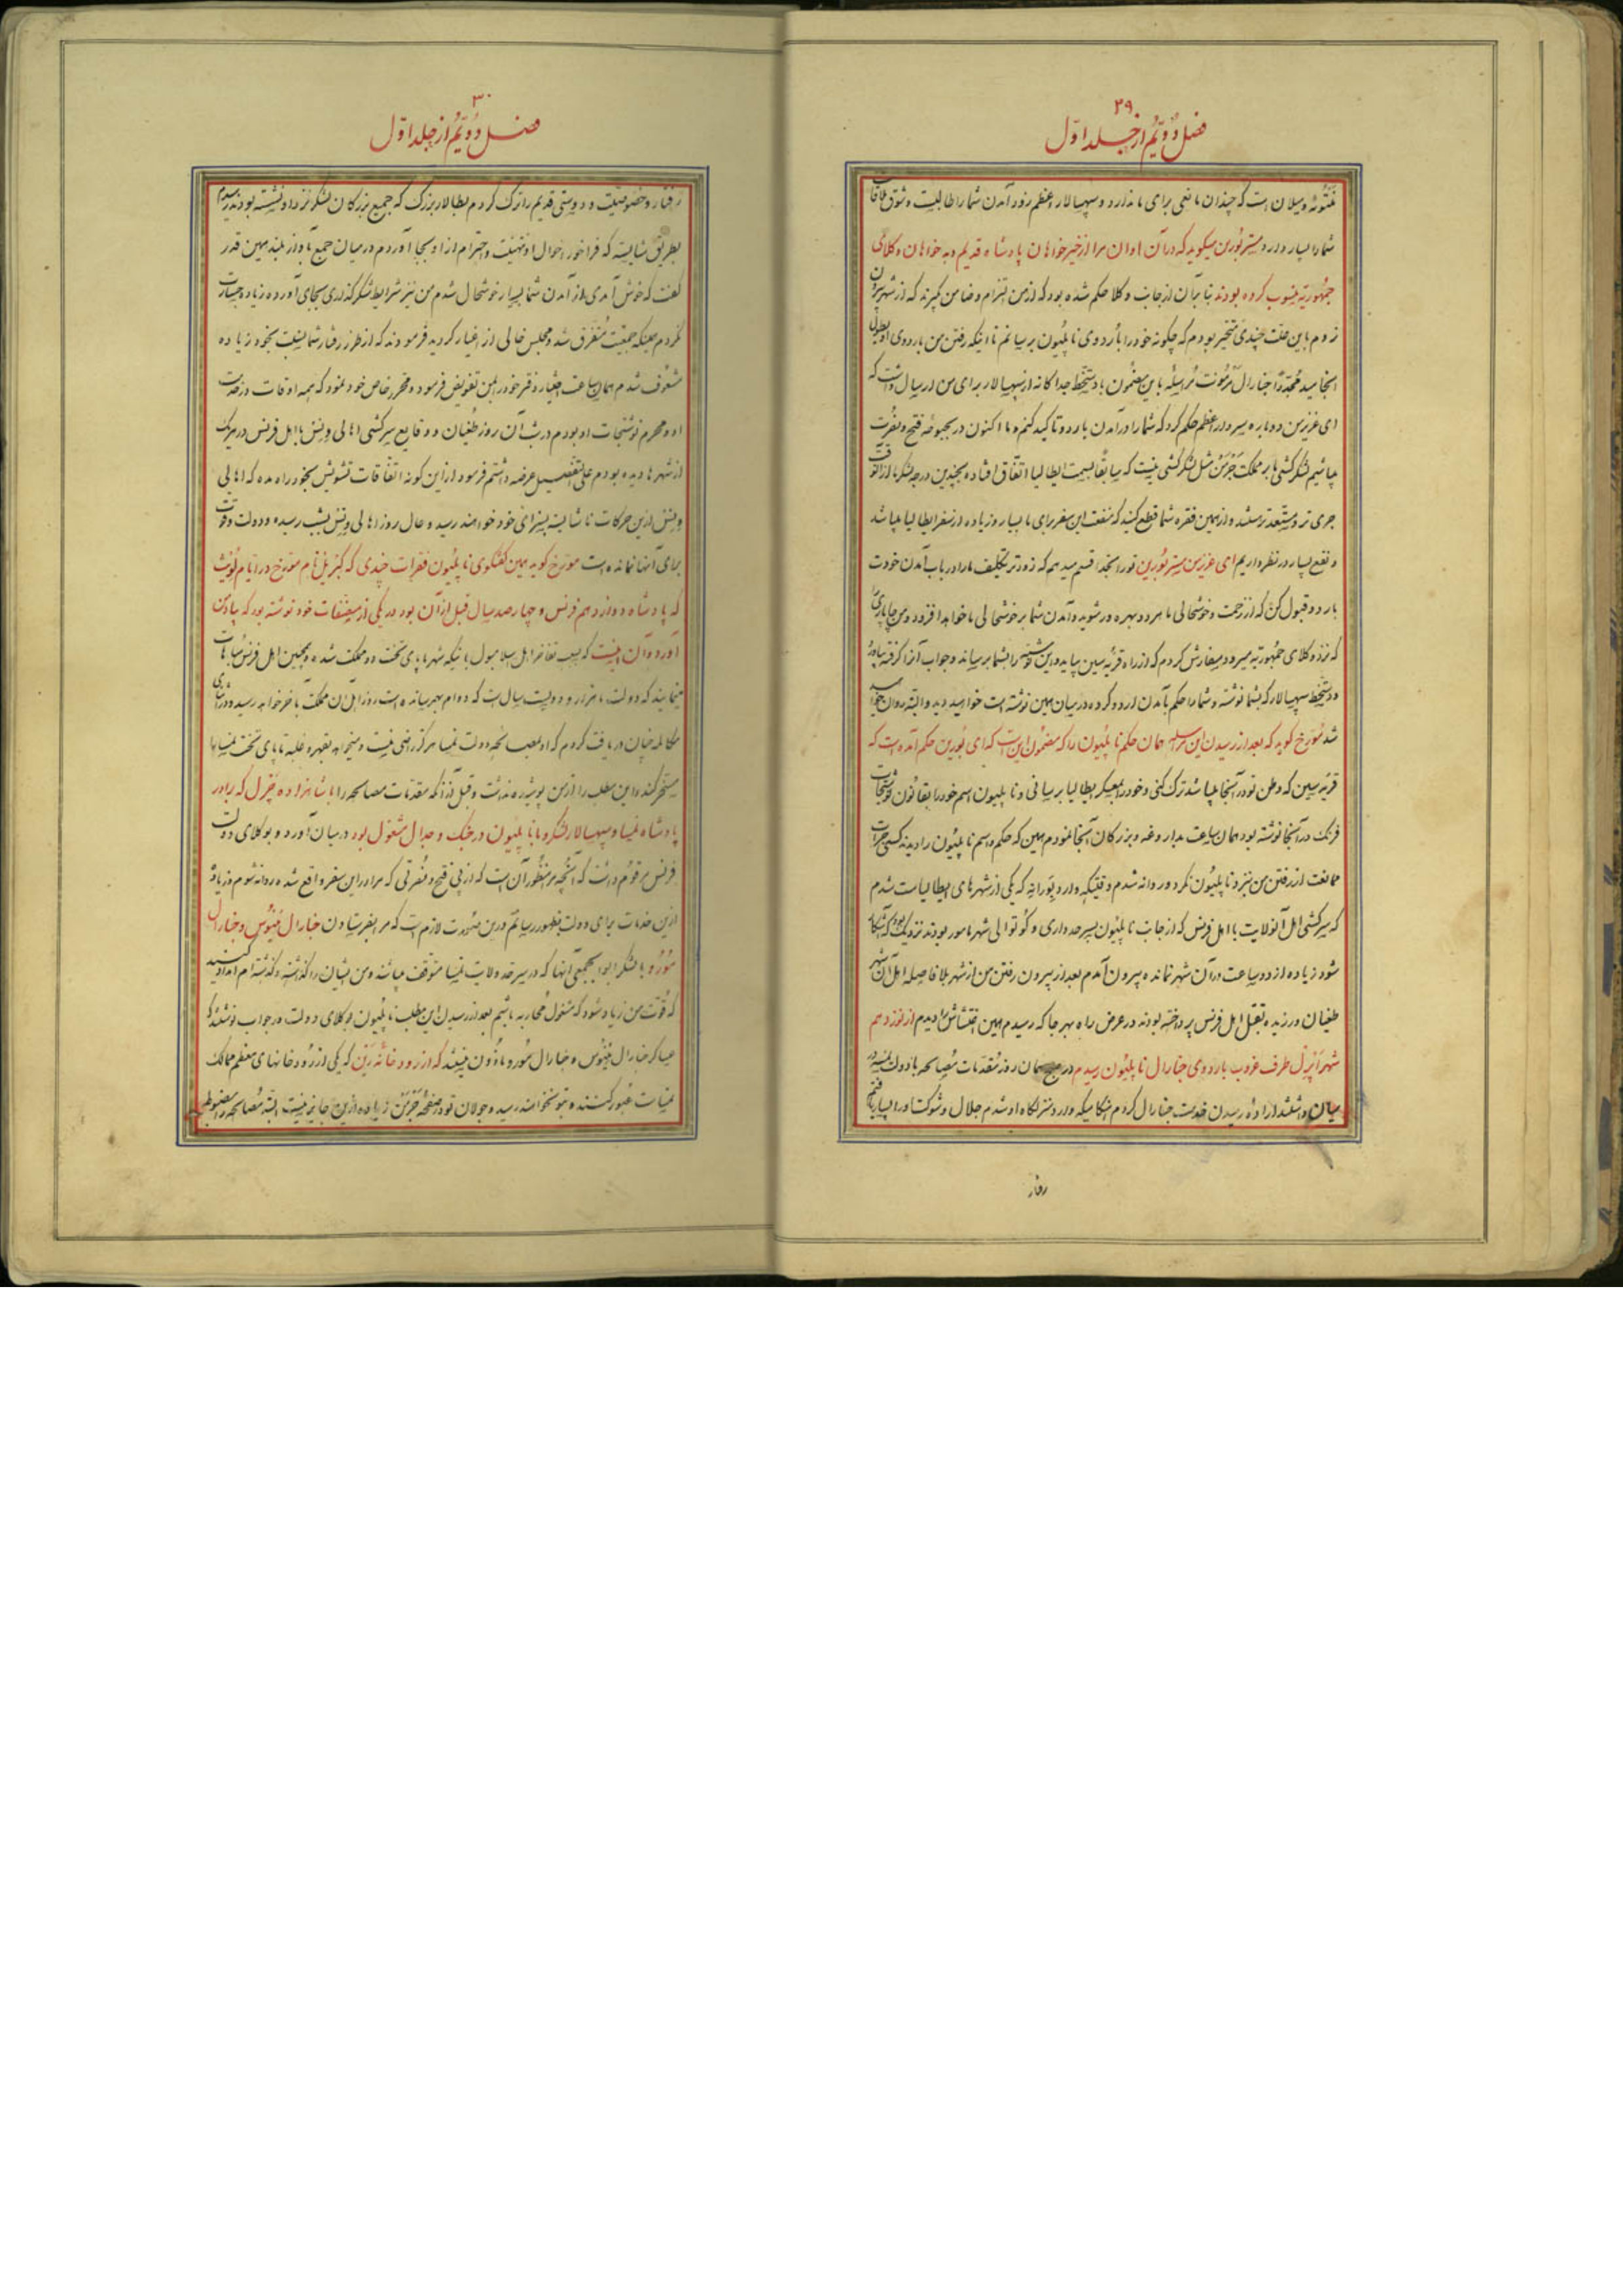 ۲۹
فصل دویّم از جلد اوّل
منتوئه و میلان است که چندان نفعی برای ما ندارد و سپهسالار اعظم زود آمدن شما را طالبست و شوق ملاقات
شما را بسیار دارد مستر بُورین میگوید که در آن اوان مرا از خیرخواهان پادشاه قدیم و بدخواهان وکلای
جمهُوریّه منسوب کرده بودند بنا بر آن از جانب وکلا حکم شده بود که از من التزام و ضامن گیرند که از شهر بیرون
نروم باین علّت چندی متحیّر بودم که چگونه خود را باُردوی ناپلیون برسانم تا اینکه رفتن من باردوی او بطول
انجامید مجدّداً جنارال مرمونت مُراسله باین مضمون با دستخط جداگانه از سپهسالار برای من ارسال داشت که
ای عزیز من دوباره سردار اعظم حکم کرد که شما را در آمدن باردو تاکید کنم و ما اکنون در بحبوحهٔ فتح و نصُرت
میباشیم لشکرکشی ما بر مملکت جَرمَن مثل لشکرکشی نیست که سابقاً بسمت ایطالیا اتّفاق افتاده بچندین درجه لشکر ما از آنوقت
جری‌تر و مستعدتر هستند و از همین فقره شما قطع کنید که منفعت این سفر برای ما بسیار و زیاده از سفر ایطالیا میباشد
و نفع بسیار در نظر داریم ای عزیز من مستر بُورین تو را بخدا قسم میدهم که زودتر تکلیف ما را در باب آمدن خودت
باردو قبول کن که از زحمت و خوشحالی ما هر دو بهره‌ور شوید و آمدن شما بر خوشحالی ما خواهد افزود و من چاپاری
که نزد وکلای جمهُوریّه میرود سفارش کردم که از راه قریهٔ سین بیاید و این نوشته را بشما برساند و جواب آنرا گرفته بیاورد
دستخط سپهسالار که بشما نوشته و شما را حکم بآمدن اردو کرده در میان همین نوشته است خواهید دید و البته روان خواهید
شد مُورّخ گوید که بعد از رسیدن این مراسله همان حکم ناپلیون را که مضمون این است که ای بُورین حکم آمده است که
قریهٔ سین که وطن تو در آنجا میباشد ترک کنی و خود را بعسکر ایطالیا برسانی و ناپلیون اسم خود را بقانون نوشتجات
فرنگ در آنجا نوشته بود همان ساعت بداروغه و بزرکان آنجا نمودم همین که حکم و اسم ناپلیون را دیدند کسی جرات
ممانعت از رفتن من بنزد ناپلیُون نکرد و روانه شدم وقتیکه وارد که یکی از شهرهای ایطالیاست شدم
که سرکشی اهل آنولایت با اهل فرنس که از جانب ناپلیُون بسرحدداری و کوتوالی شهر مامور بودند نزدیک بود که آشکار
شود زیاده از دو ساعت در آن شهر نمانده بیرون آمدم بعد از بیرون رفتن من از شهر بلافاصله اهل آن شهر
طغیان ورزیده بقتل اهل فرنس پرداخته بودند در عرض راه بهر جا که رسیدم همین اغتشاش را دیدم از نوزدهم
شهر اَپرَل طرف غروب باردوی جنارال ناپلیُون رسیدم در صبح همان روز مُقدّمات مُصالحه با دولت نمسه در
میان داشتند ارادهٔ رسیدن خدمت جنارال کردم هنکامیکه وارد منزلکاه او شدم جلال و شوکت او را بسیار یافتم
رفتار
۳۰
فصل دویّم از جلد اوّل
رفتار و خصوصیّت و دوستی قدیم را ترک کردم بطالار بزرگ که جمیع بزرکان لشکر نزد او نشسته بودند رسیدم
بطریق شایسته که فراخور احوال او تهنیت و احترام از او بجا آوردم در میان جمع بآواز بلند همین قدر
گفت که خوش آمدی از آمدن شما بسیار خوشحال شدم من نیز شرایط شکرگذاری بجای آورده زیاده جسارت
نکردم همینکه جمعیّت مُتفرّق شد و مجلس خالی از اغیار گردید فرمودند که از طرز رفتار شما نسبت بخود زیاده
مشعُوف شدم همان ساعت اختیار دفتر خود را بمن تفویض فرمود و محرّر خاص خود نمود که همه اوقات در خدمت
او و محرم نوشتجات او بودم در شب آن روز طُغیان و وقایع سرکشی اهالی ونِس با اهل فرنس در هر یک
از شهرها دیده بودم علی‌التفصیل عرضه داشتم فرمود از این گونه اتّفاقات تشویش بخود راه مده که اهالی
ونِس از این حرکات ناشایسته بسزای خود خواهند رسید و حال روز اهالی ونِس بشب رسیده و دولت و قوّت
برای آنها نمانده است مورّخ گوید همین گفتگوی ناپلیُون فقرات چندی که نام مورّخ در ایّام
که پادشاه دوازدهم فرنس و چهارصد سال قبل از آن بود در یکی از مصنّفات خود نوشته بود که بیاد من
آورد و آن اینست که بسبب تفاخر اهل اسلامبول باینکه شهر ما پای تخت دو مملکت شده و همچنین اهل فرنس مباهات
مینمایند که دولت ما هزار و دویست سال است که دوام بهم رسانده است روز اهل آن مملکت بآخر خواهد رسید و در اثنای
مکالمه چنان دریافت کردم که او بمصالحه دولت نمسا هرگز راضی نیست و میخواهد بقهر و غلبه تا پای تخت نمسا را
مسخر کند و این مطلب را از من پوشیده نداشت و قبل از آنکه مقدّمات مصالحه را با شاهزاده چَرل که برادر
پادشاه نمسا و سپهسالار لشکر و با ناپلیُون در جنگ و جدال مشغول بود در میان آورد و بوکلای دولت
فرنس مرقوم داشت که آنچه مرا منظُور آن است که از پی فتح و نصُرتی که مرا در این سفر واقع شده روانه شوم و زیاده
از این خدمات برای دولت بظهور رسانم در این صُورت لازم است که مرا بفرستادن جنارال و جنارال
مُورُو با لشکر ابوابجمعی آنها که در سرحد ولایت نمسا متوقّف میباشند و من ایشان را گذاشته و گذشته‌ام امداد کنید
که قوّت من زیاد شود که مشغول مُحاربه باشم بعد از رسیدن این مطلب ناپلیُون بوکلای دولت در جواب نوشتند که
عساکر جنارال و جنارال مُورو ماذون نیستند که از رودخانهٔ رین که یکی از رُودخانهای معظم ممالک
نمسات عبور کنند و بتو نخواهند رسید و جولان تو در صفحهٔ جَرمَن زیاده از این جایز نیست البتّه مُصالحه را مضبوط